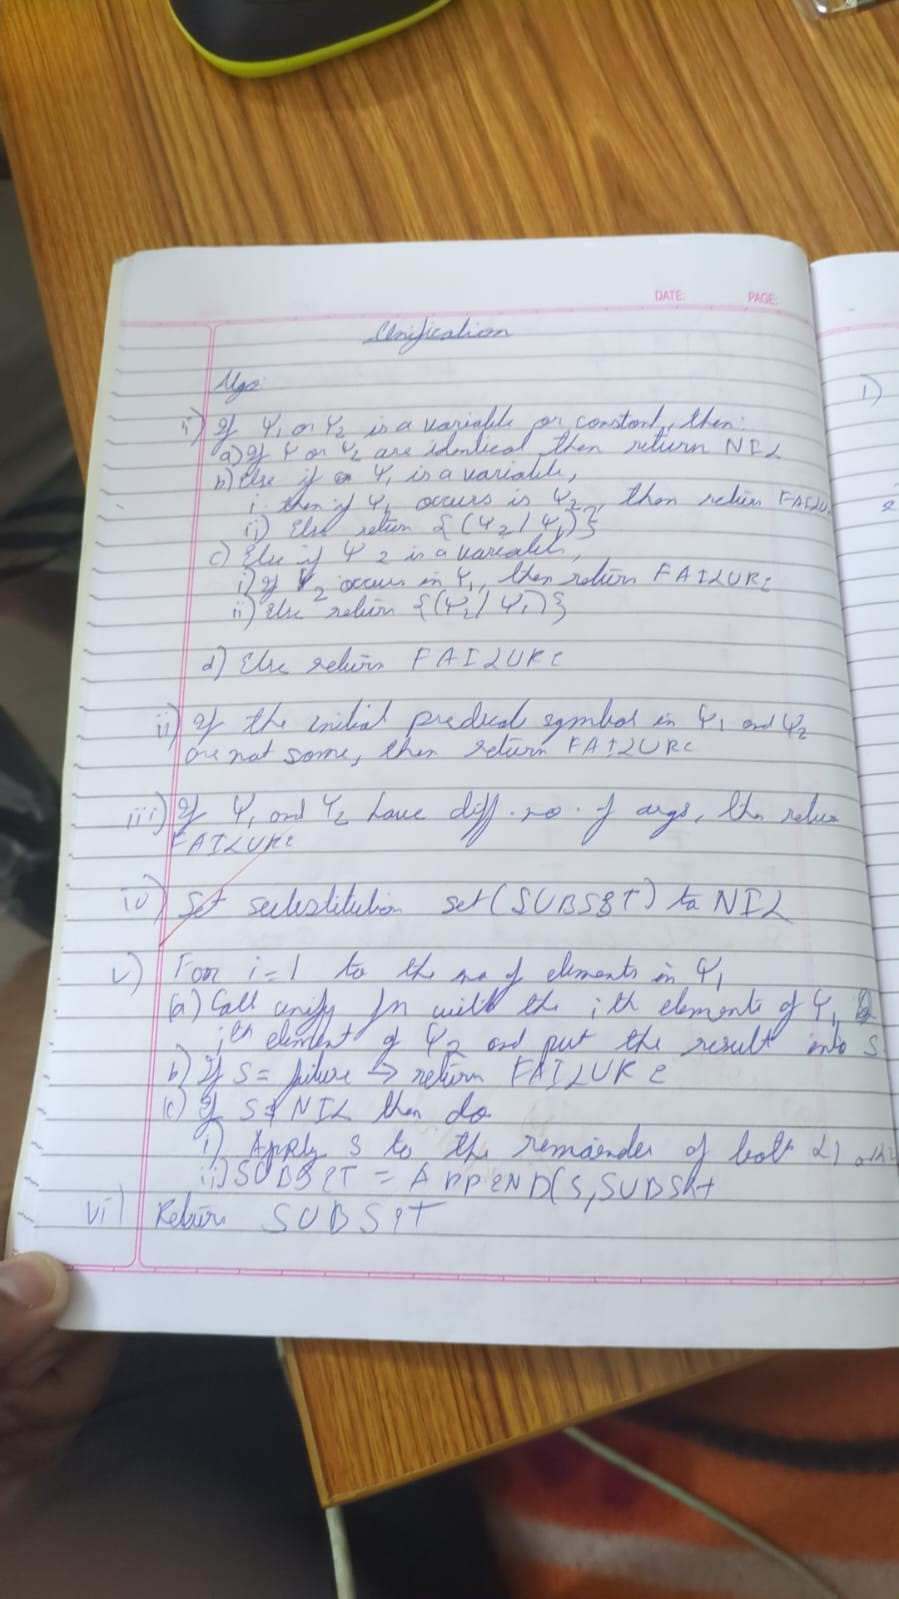 DATE: PAGE:
Unification
Algo:
i) If Ψ1 or Ψ2 is a variable or constant, then:
a) If Ψ or Ψ2 are identical then return NIL
b) Else if Ψ1 is a variable,
i. then if Ψ1 occurs is Ψ2, then return FAILU
ii) Else return {(Ψ2 / Ψ1)}
c) Else if Ψ2 is a variable,
i) If Ψ2 occurs in Ψ1, then return FAILURE
ii) Else return {(Ψ2 / Ψ1)}
d) Else return FAILURE
ii) If the initial predicate symbol in Ψ1 and Ψ2
are not same, then return FAILURE
iii) If Ψ1 and Ψ2 have diff. no. of args, the return
FAILURE
iv) Set substitution set (SUBSBT) to NIL
v) For i=1 to the no of elements in Ψ1
(a) Call unify fn with the ith elements of Ψ1
ith element of Ψ2 and put the result into S
b) If S = failure → return FAILURE
(c) If S ≠ NIL then do
i) Apply S to the remainder of both L1
ii) SUBSET = APPEND(S, SUBSET
vi) Return SUBSET
1)
2